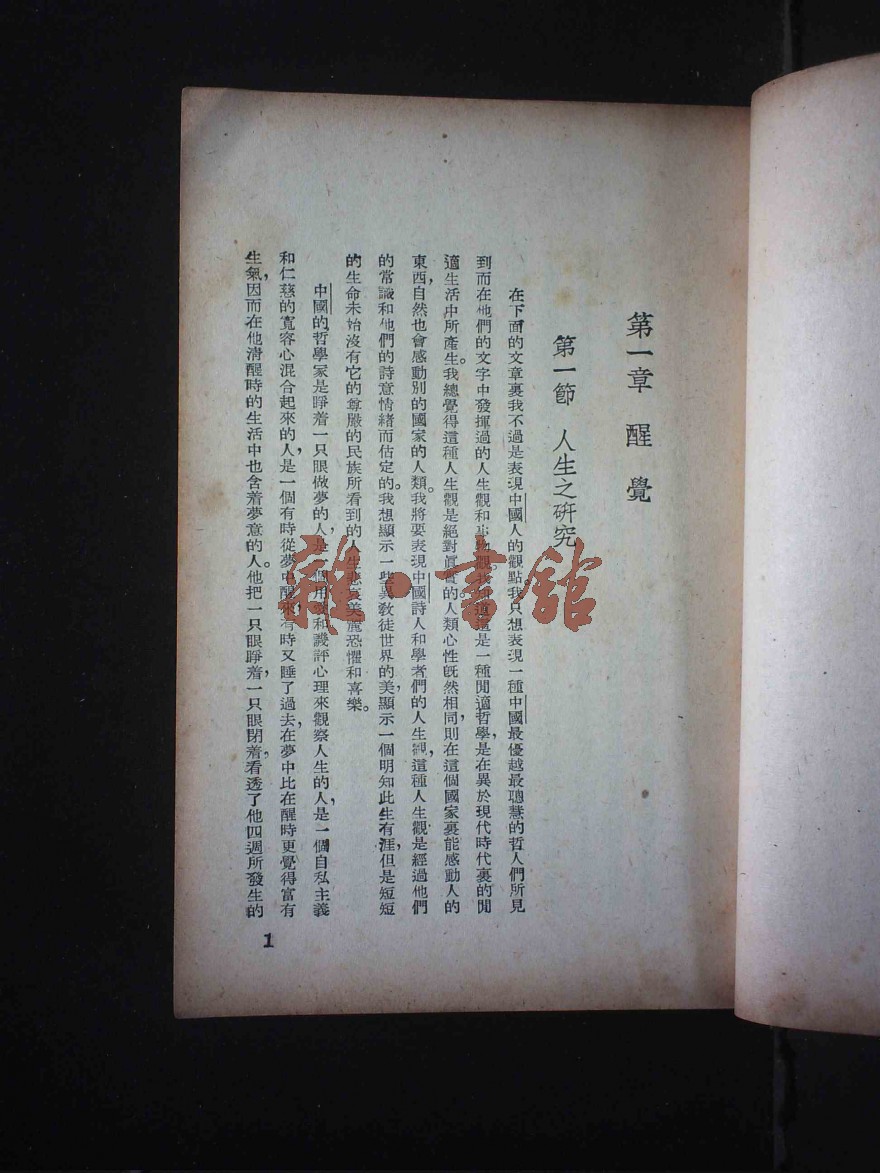 第一章 醒覺
第一節 人生之研究
在下面的文章裏我不過是表現中國人的觀點。我只想表現一種中國最優越最聰慧的哲人們所見
到而在他們的文字中發揮過的人生觀和事物觀。我知道這是一種閒適哲學,是在異於現代時代裏的閒
適生活中所產生。我總覺得這種人生觀是絕對眞實的。人類心性旣然相同,則在這個國家裏能感動人的
東西,自然也會感動別的國家的人類。我將要表現中國詩人和學者們的人生觀,這種人生觀是經過他們
的常識和他們的詩意情緒而估定的。我想顯示一些異敎徒世界的美,顯示一個明知此生有涯,但是短短
的生命未始沒有它的尊嚴的民族所看到的人生悲哀美麗恐懼和喜樂。
中國的哲學家是睜着一只眼做夢的人,是一個用愛和譏評心理來觀察人生的人,是一個自私主義
和仁慈的寬容心混合起來的人,是一個有時從夢中醒來有時又睡了過去,在夢中比在醒時更覺得富有
生氣,因而在他淸醒時的生活中也含着夢意的人。他把一只眼睜着,一只眼閉着,看透了他四週所發生的
1
雜·書館